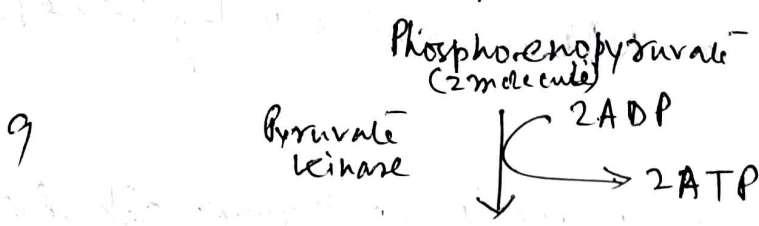 Phosphoenopyruvate
(2 molecule)
9 Pyruvate 2ADP
kinase
2ATP